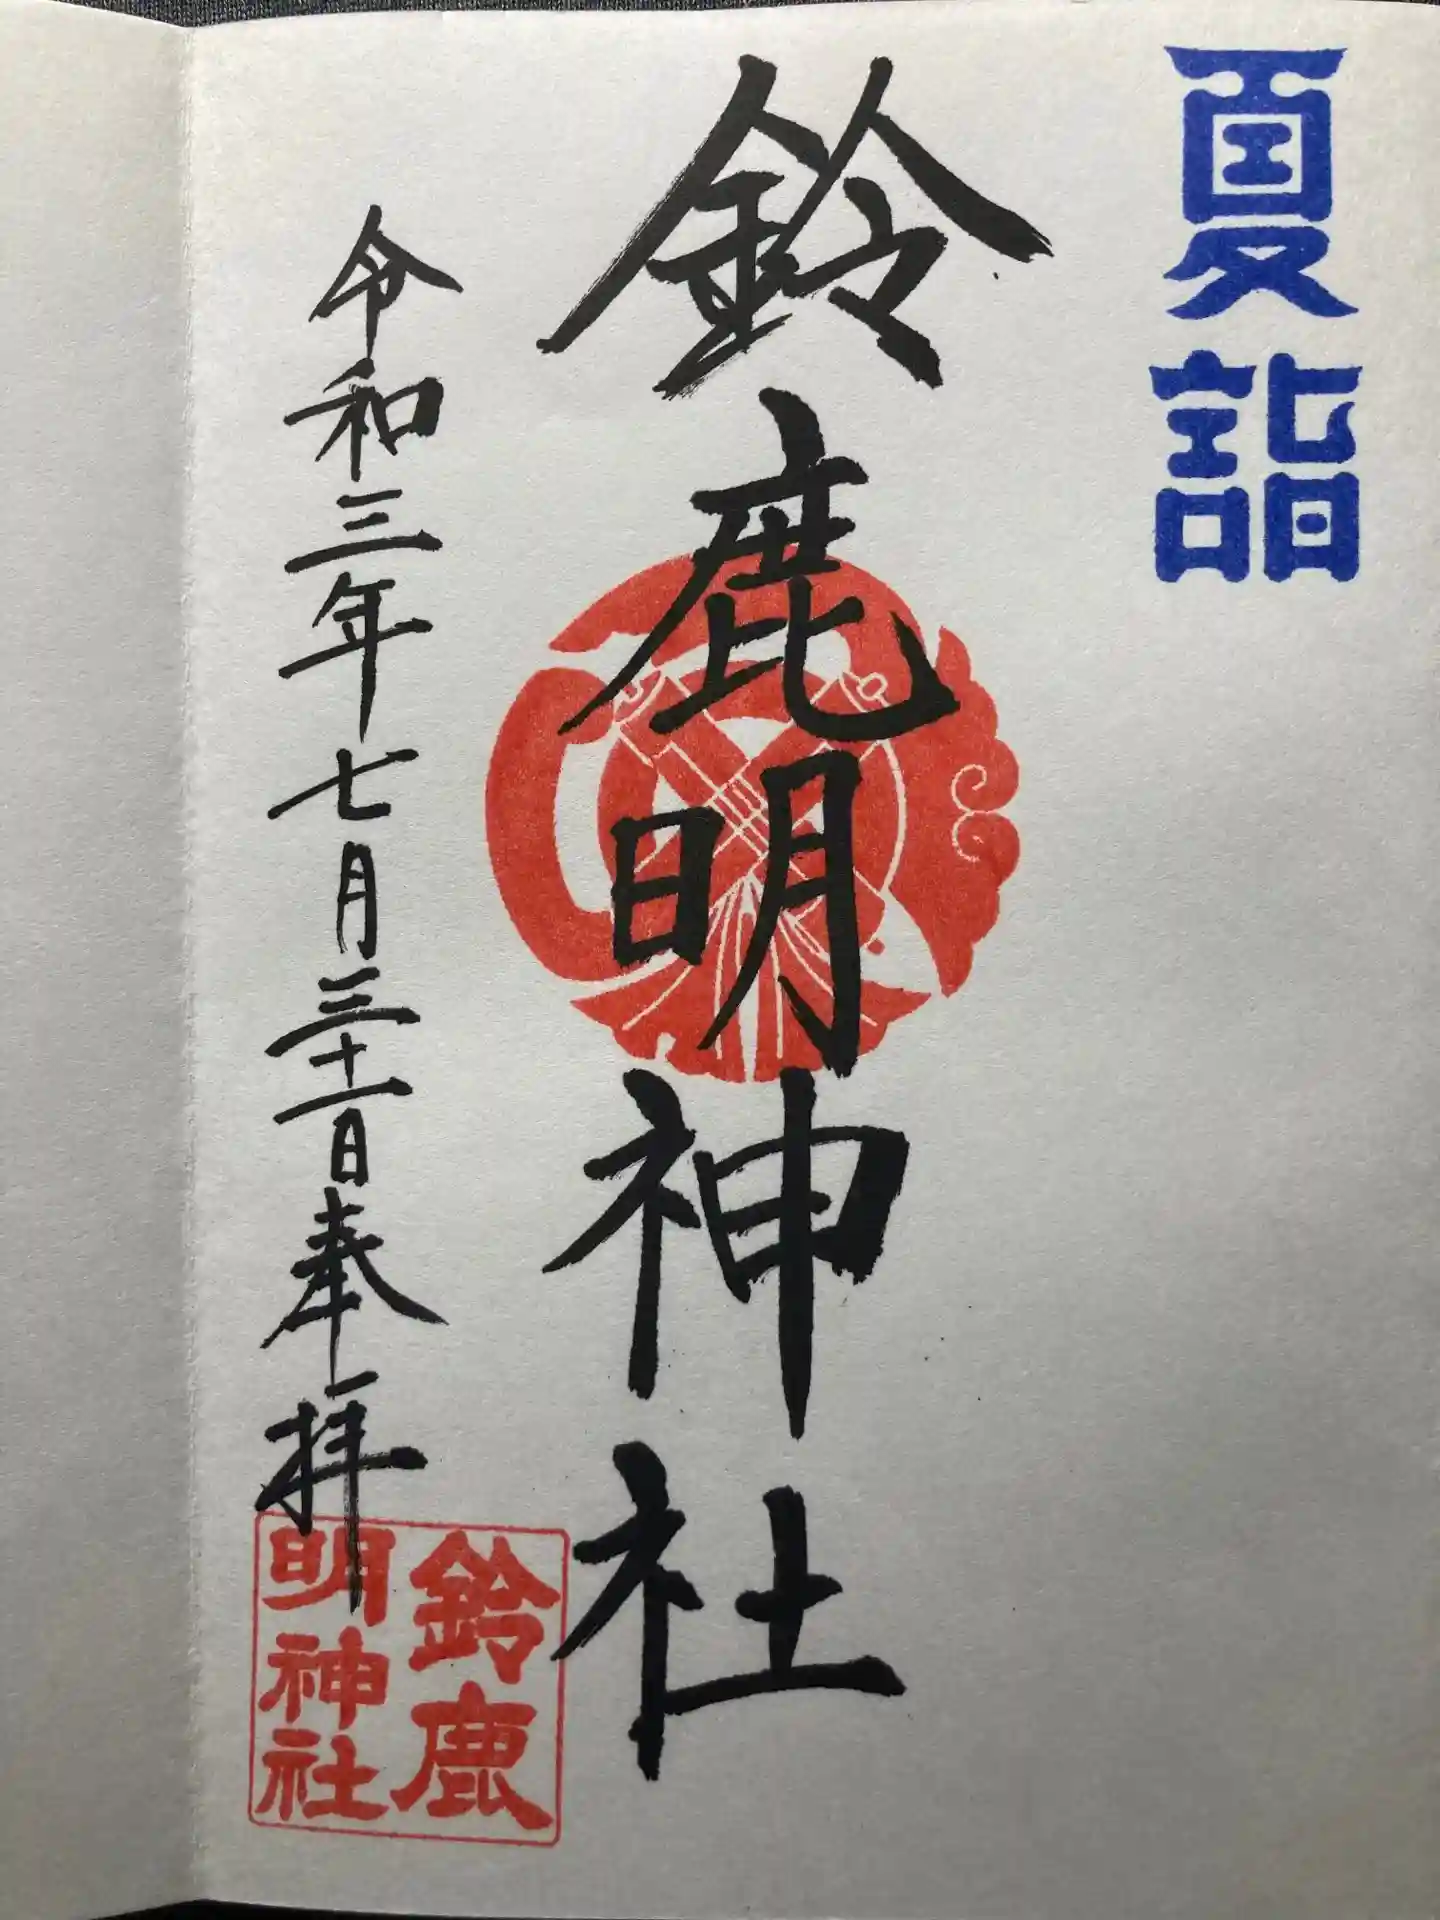 夏詣
鈴鹿明神社
令和三年七月三十一日奉拝
鈴鹿
明神社